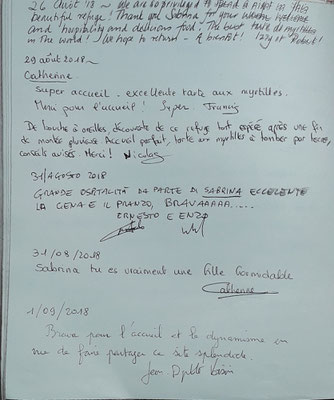 26 Août '18 ~ We are so privileged to spend a night in this
beautiful refuge! Thank you Sabrina for your warm welcome
and hospitality and delicious food; The best tarte de myrtilles
in the world! We hope to return - A bientôt! Izzy et Robert!
29 août 2018 ~
Catherine.
Super accueil - excellente tarte aux myrtilles.
Merci pour l'accueil! Super. Francis
De bouche à oreilles découverte de ce refuge tant espéré après une fin
de montée pluvieuse. Accueil parfait, tarte aux myrtilles à tomber par terre,
conseils avisés. Merci! Nicolas
31 AGOSTO 2018
GRANDE OSPITALITÀ DA PARTE DI SABRINA ECCELENTE
LA CENA E IL PRANZO, BRAVAAAAA.....
ERNESTO E ENZO
31/08/2018
Sabrina tu es vraiment une fille formidable
Catherine
1/09/2018
Bravo pour l'accueil et le dynamisme en
vue de faire partager ce site splendide.
Jean